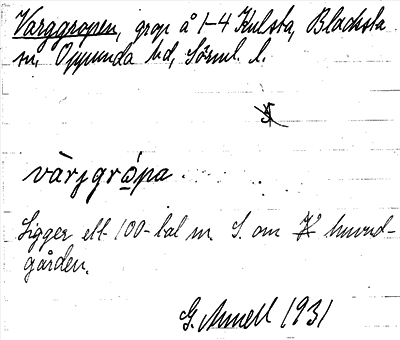 Varggropen, grop å 1-4 Hulsta, Blacksta
sn, Oppunda hd, Söml. l.
värjgrópa.
Ligger ett 100-tal m S. om huvud-
gården.
G. Annell 1931